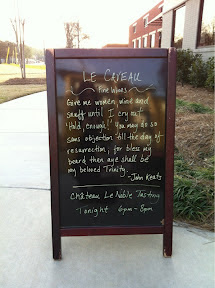 LE CAVEAU
Fine Wines
Give me women, wine and
snuff until I cry out
"hold, enough!" You may do so
sans objection till the day of
resurrection; for bless my
beard then aye shall be
my beloved Trinity. -John Keats
Château Le Noble Tasting
Tonight 6pm-8pm